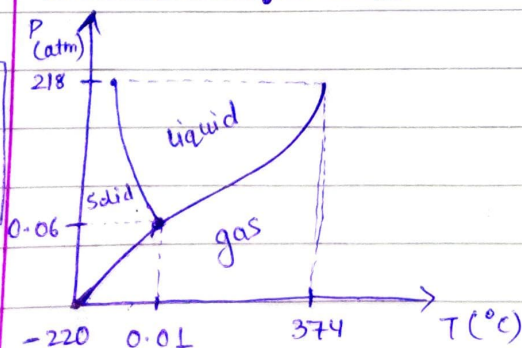 P
(atm)
218
liquid
Solid
0.06
gas
-220 0.01 374 T(°C)